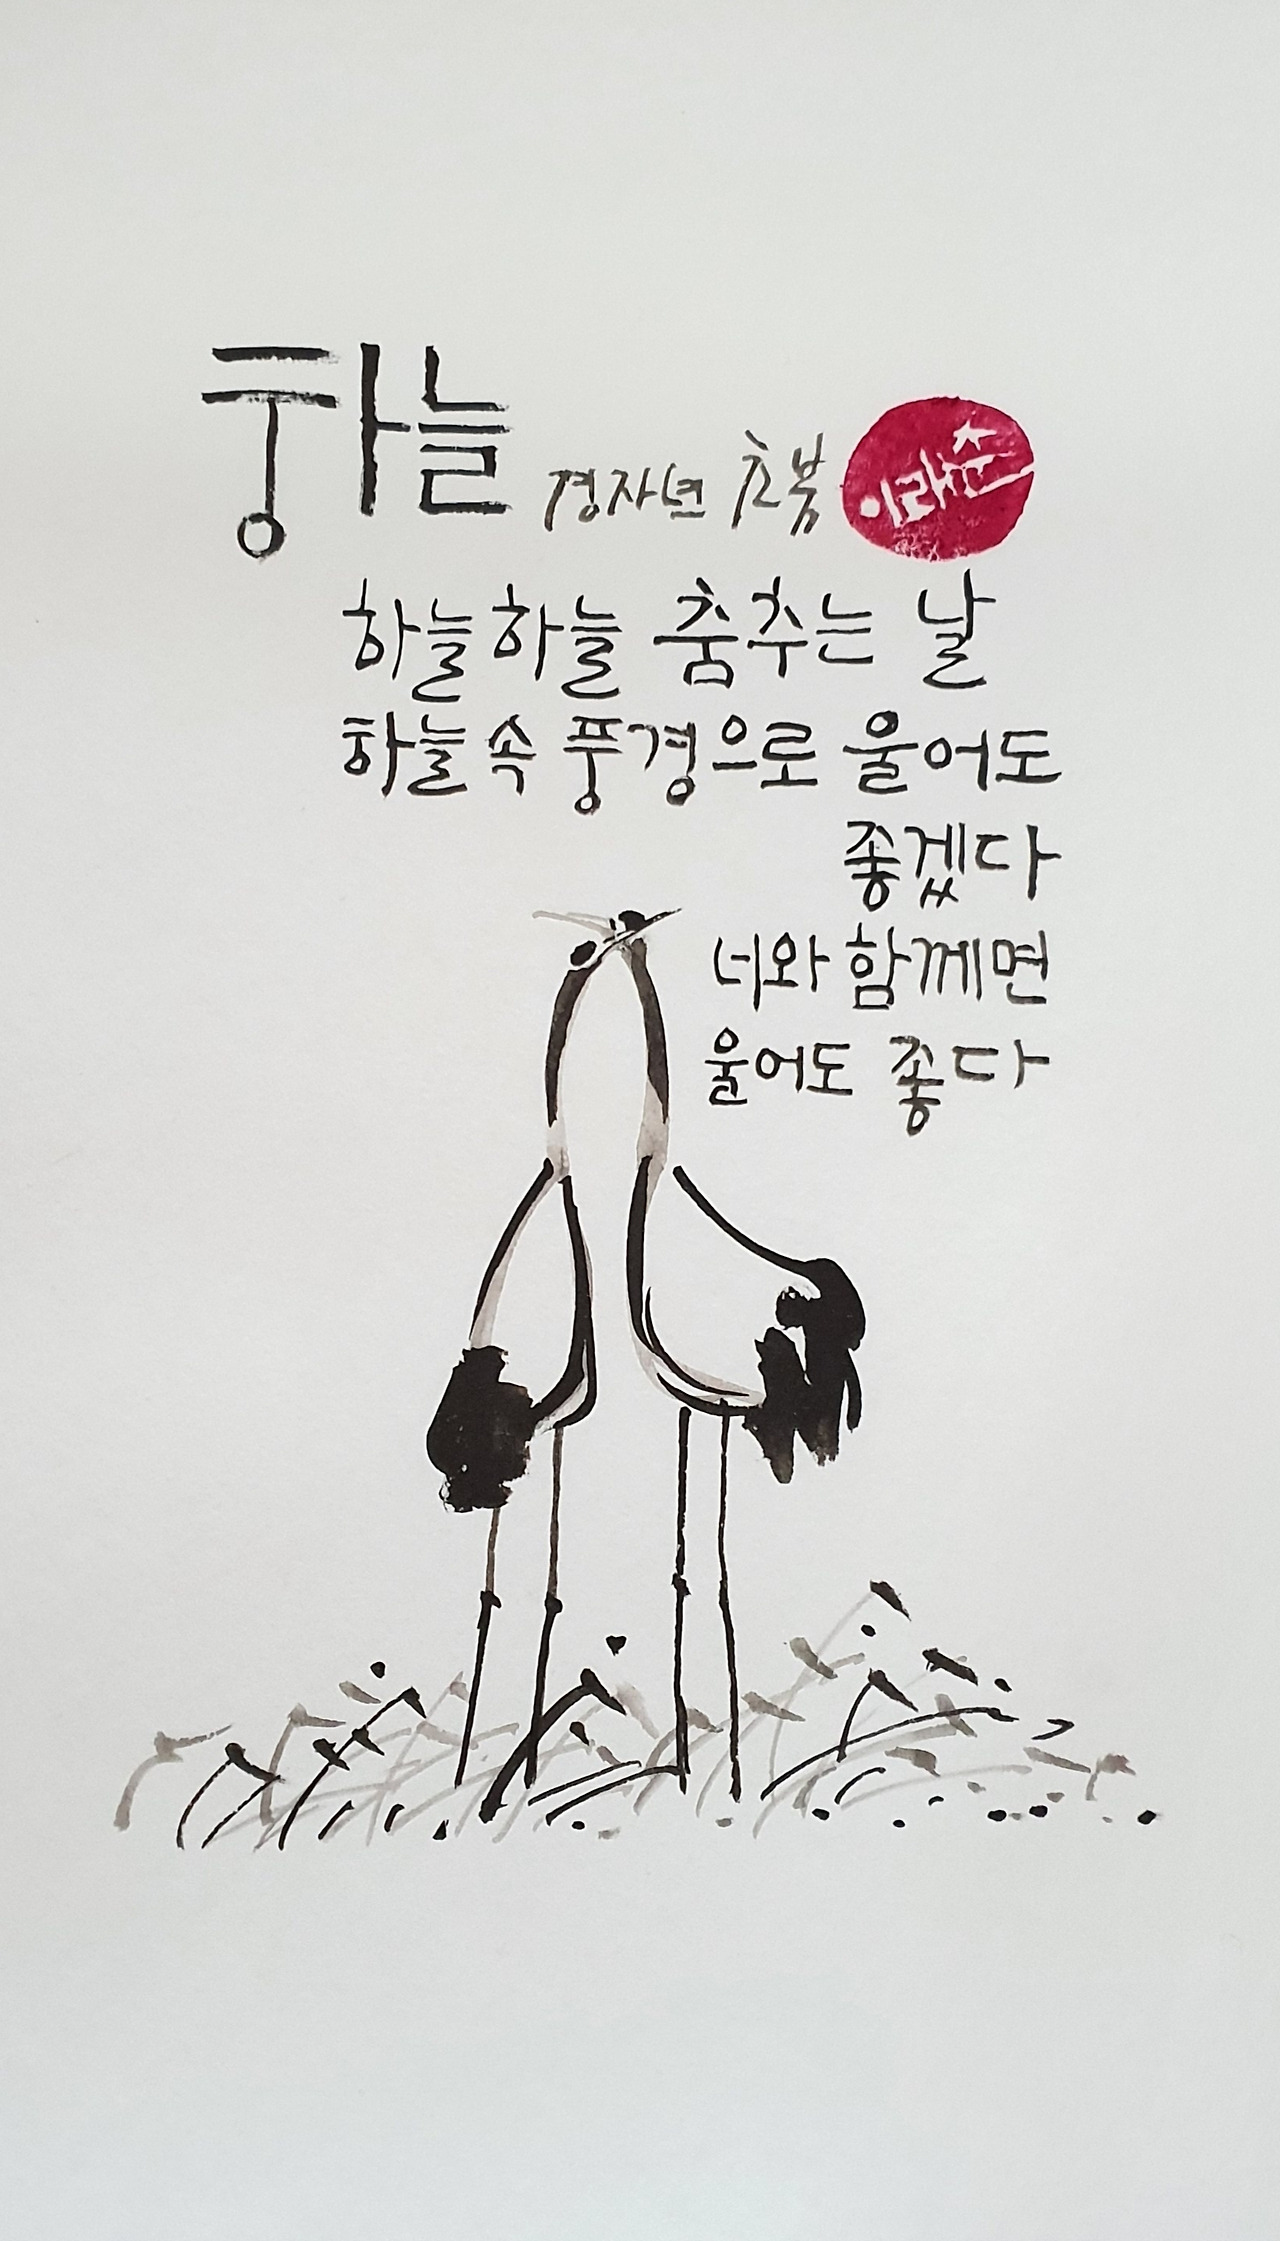 하늘
경자년 초복
이래춘
하늘하늘 춤추는 날
하늘 속 풍경으로 울어도
좋겠다
너와 함께면
울어도 좋다